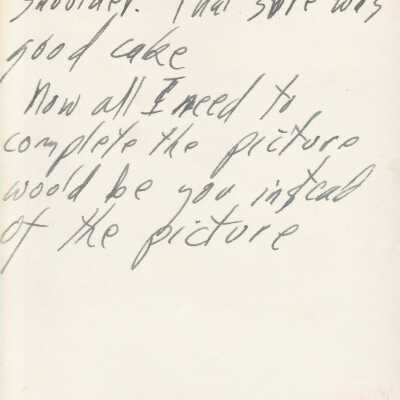 shoulder. That sure was
good cake
Now all I need to
complete the picture
woold be you instead
of the picture